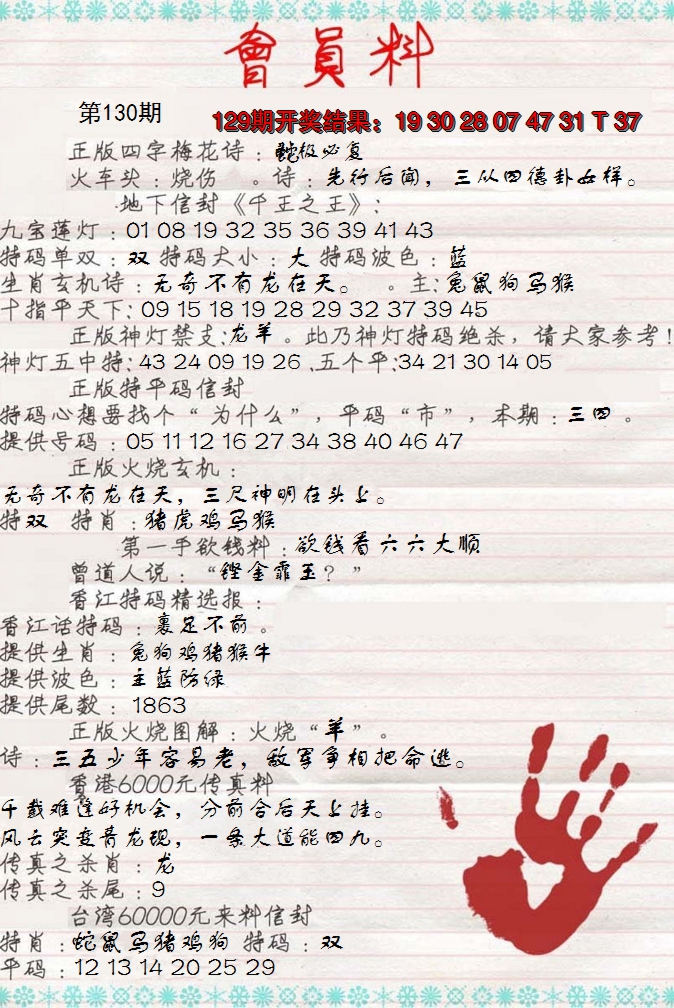 會員料
第130期
129期开奖结果：19 30 28 07 47 31 T 37
正版四字梅花诗：极必复
火车头：烧伤 。诗：先行后闻，三从四德卦女样。
地下信封《千王之王》：
九宝莲灯：01 08 19 32 35 36 39 41 43
特码单双：双 特码大小：大 特码波色：蓝
生肖玄机诗：无奇不有龙在天。 。主：兔鼠狗马猴
十指平天下：09 15 18 19 28 29 32 37 39 45
正版神灯禁支：龙羊。此乃神灯特码绝杀，请大家参考！
神灯五中特：43 24 09 19 26 .五个平：34 21 30 14 05
正版特平码信封
特码心想要找个“为什么”，平码“市”，本期：三四。
提供号码：05 11 12 16 27 34 38 40 46 47
正版火烧玄机：
无奇不有龙在天，三尺神明在头上。
特双 特肖：猪虎鸡马猴
第一手欲钱料：欲钱看六六大顺
曾道人说：“铿金霏玉？”
香江特码精选报：
香江话特码：裹足不前。
提供生肖：兔狗鸡猪猴牛
提供波色：主蓝防绿
提供尾数：1863
正版火烧图解：火烧“羊”。
诗：三五少年容易老，敌军争相把命逃。
香港6000元传真料
千载难逢好机会，分前合后天上挂。
风云突变青龙现，一条大道能四九。
传真之杀肖：龙
传真之杀尾：9
台湾60000元来料信封
特肖：蛇鼠马猪鸡狗 特码：双
平码：12 13 14 20 25 29